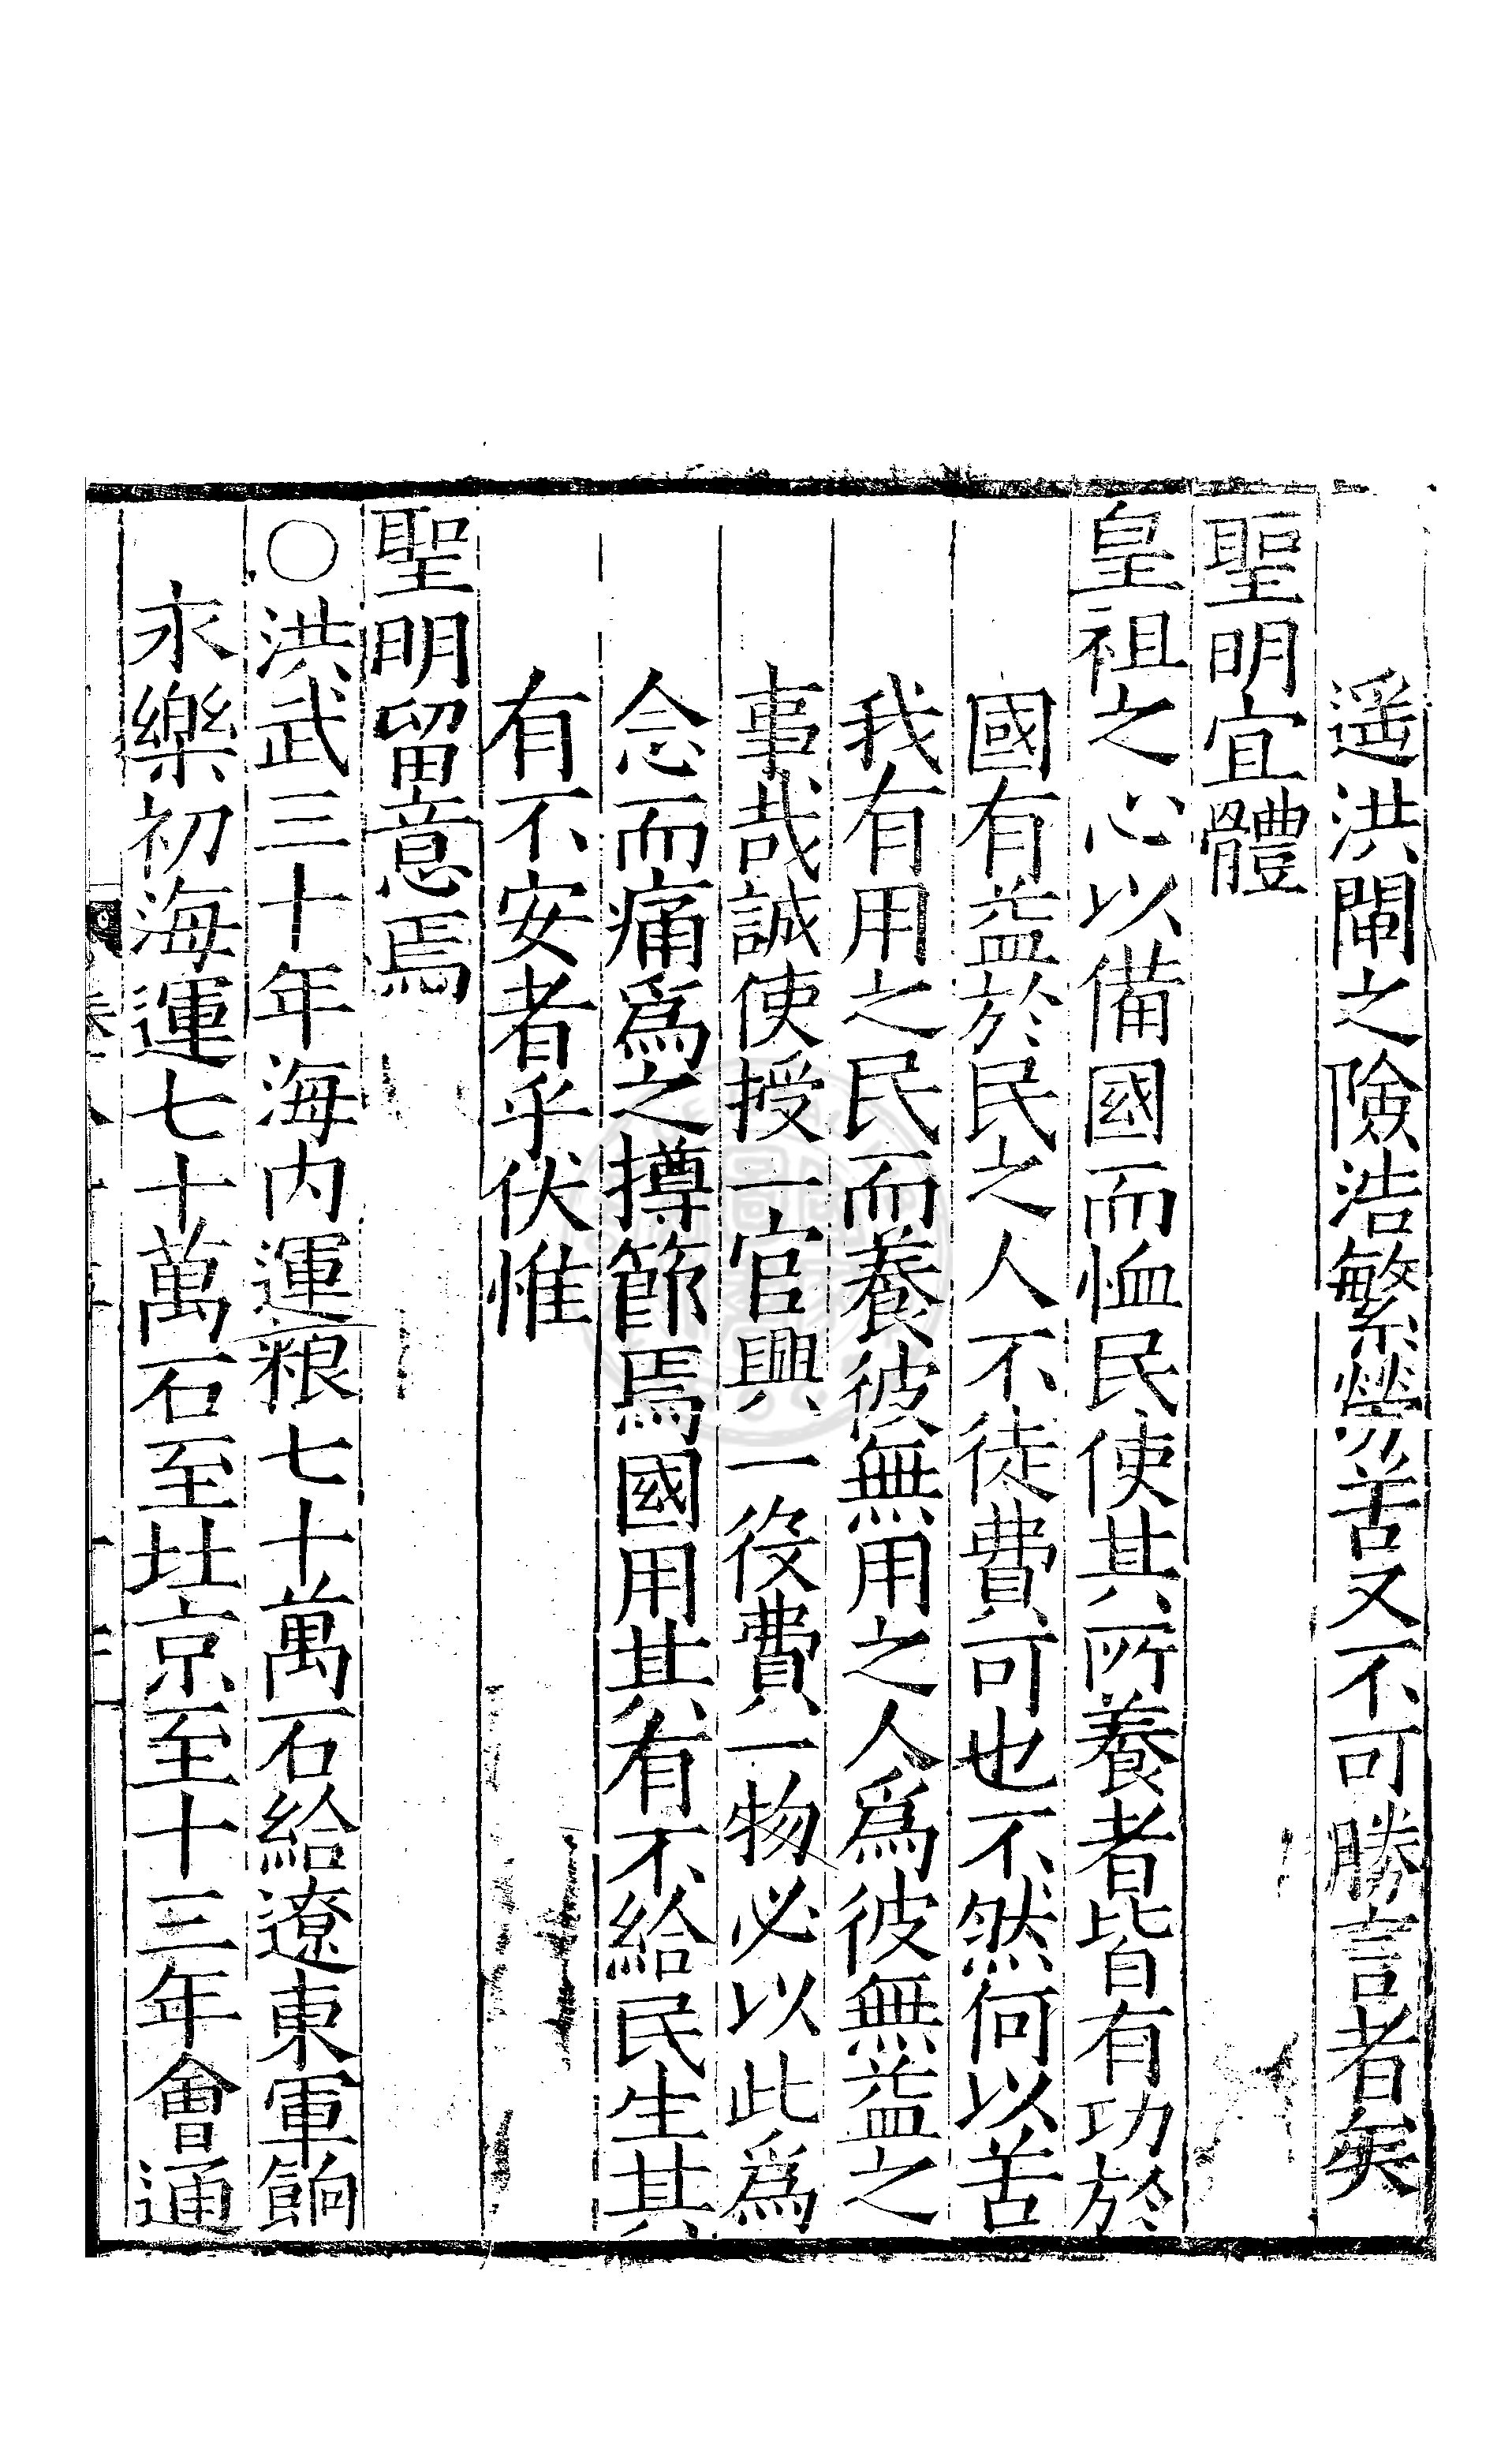 遥洪閘之險浩繁勞苦又不可勝言者矣
聖明宜體
皇祖之心以備國而恤民使其所養者皆有功於
國有益於民之人不徒費可也不然何以苦
我有用之民而養彼無用之人爲彼無益之
事哉誠使授一官興一役費一物必以此爲
念而痛爲之撙節焉國用其有不給民生其
有不安者乎伏惟
聖明留意焉
○洪武三十年海内運粮七十萬石給遼東軍餉
永樂初海運七十萬石至北京至十三年會通